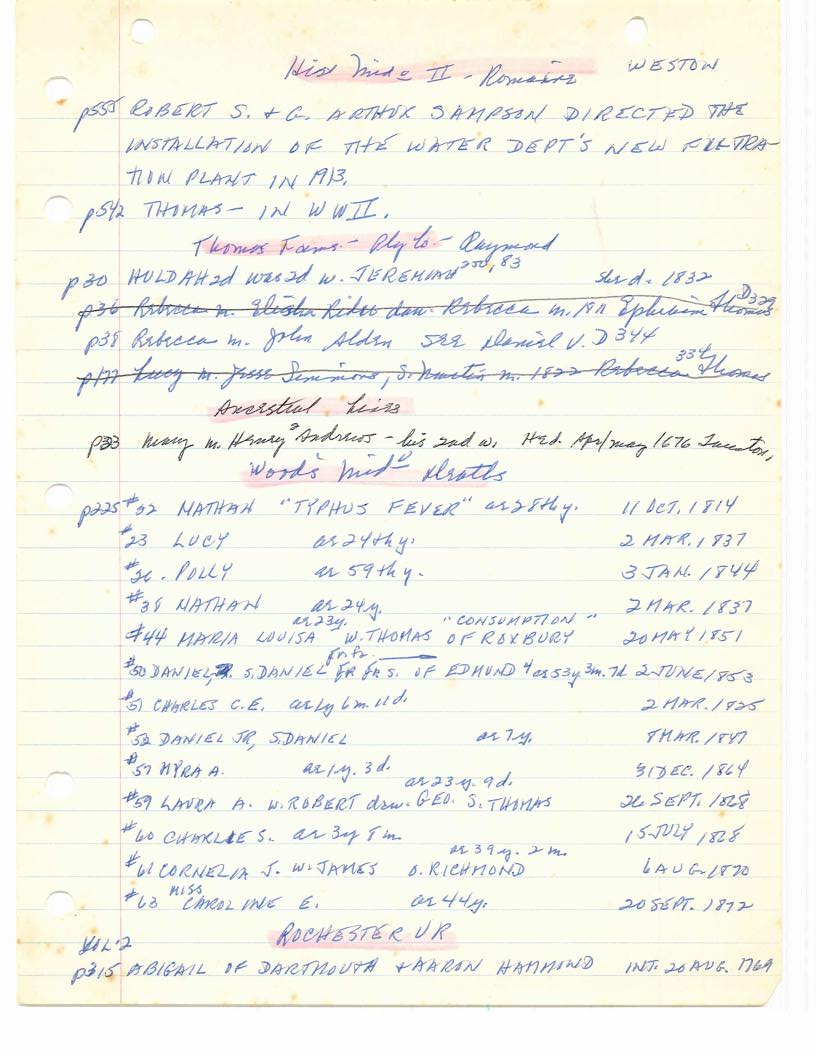 Hist Mid° II - Romaine WESTON
p555 ROBERT S. & G. ARTHUR SAMPSON DIRECTED THE
INSTALLATION OF THE WATER DEPT'S NEW FILTRA-
TION PLANT IN 1913.
p542 THOMAS - IN WW II.
Thomas Fams. - Ply to - Raymond
p30 HULDAH 2d was 2d w. JEREMIAH 250, 83 She d. 1832
p36 Rebecca m. Elisha Rider dau. Rebecca m. 1811 Ephraim Thomas D329
p38 Rebecca m. John Alden SEE Daniel V. D344
p177 Lucy m. Jesse Simmons, S. m. 1822 Rebecca 334 Thomas
Ancestral Lines
p33 Mary m. Henry² Andrews - his 2nd w. He d. Apr/May 1676 Taunton,
Wood's Mid° Deaths
p225 #22 NATHAN "TYPHUS FEVER" ae 28th y. 11 OCT. 1814
#23 LUCY ae 24th y. 2 MAR. 1837
#26. POLLY ae 59th y. 3 JAN. 1844
#38 NATHAN ae 24 y. 2 MAR. 1837
#44 MARIA LOUISA ae 23y. W. THOMAS OF ROXBURY "CONSUMPTION" 20 MAY 1851
#50 DANIEL, S. DANIEL JR OF EDMUND 4 ae 53y 3m. 7d 2 JUNE 1853
#51 CHARLES C.E. ae 1y 6m 11d. 2 MAR. 1825
#52 DANIEL JR, S. DANIEL ae 7y. 8 MAR. 1847
#57 MYRA A. ae 1y. 3d. 31 DEC. 1864
#59 LAURA A. W. ROBERT dau. GEO. S. THOMAS ae 23y. 9d. 26 SEPT. 1868
#60 CHARLES S. ae 3y 8m 15 JULY 1868
#61 CORNELIA J. W. JAMES D. RICHMOND ae 39y. 2m. 6 AUG. 1870
#63 MISS CAROLINE E. ae 44y. 20 SEPT. 1872
VOL. 2 ROCHESTER VR
p315 ABIGAIL OF DARTMOUTH & AARON HAMMOND INT. 20 AUG. 1769